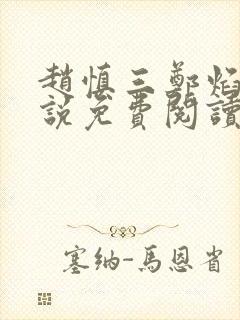 趙慎三鄭焰
說免費閱讀
塞納-馬恩省